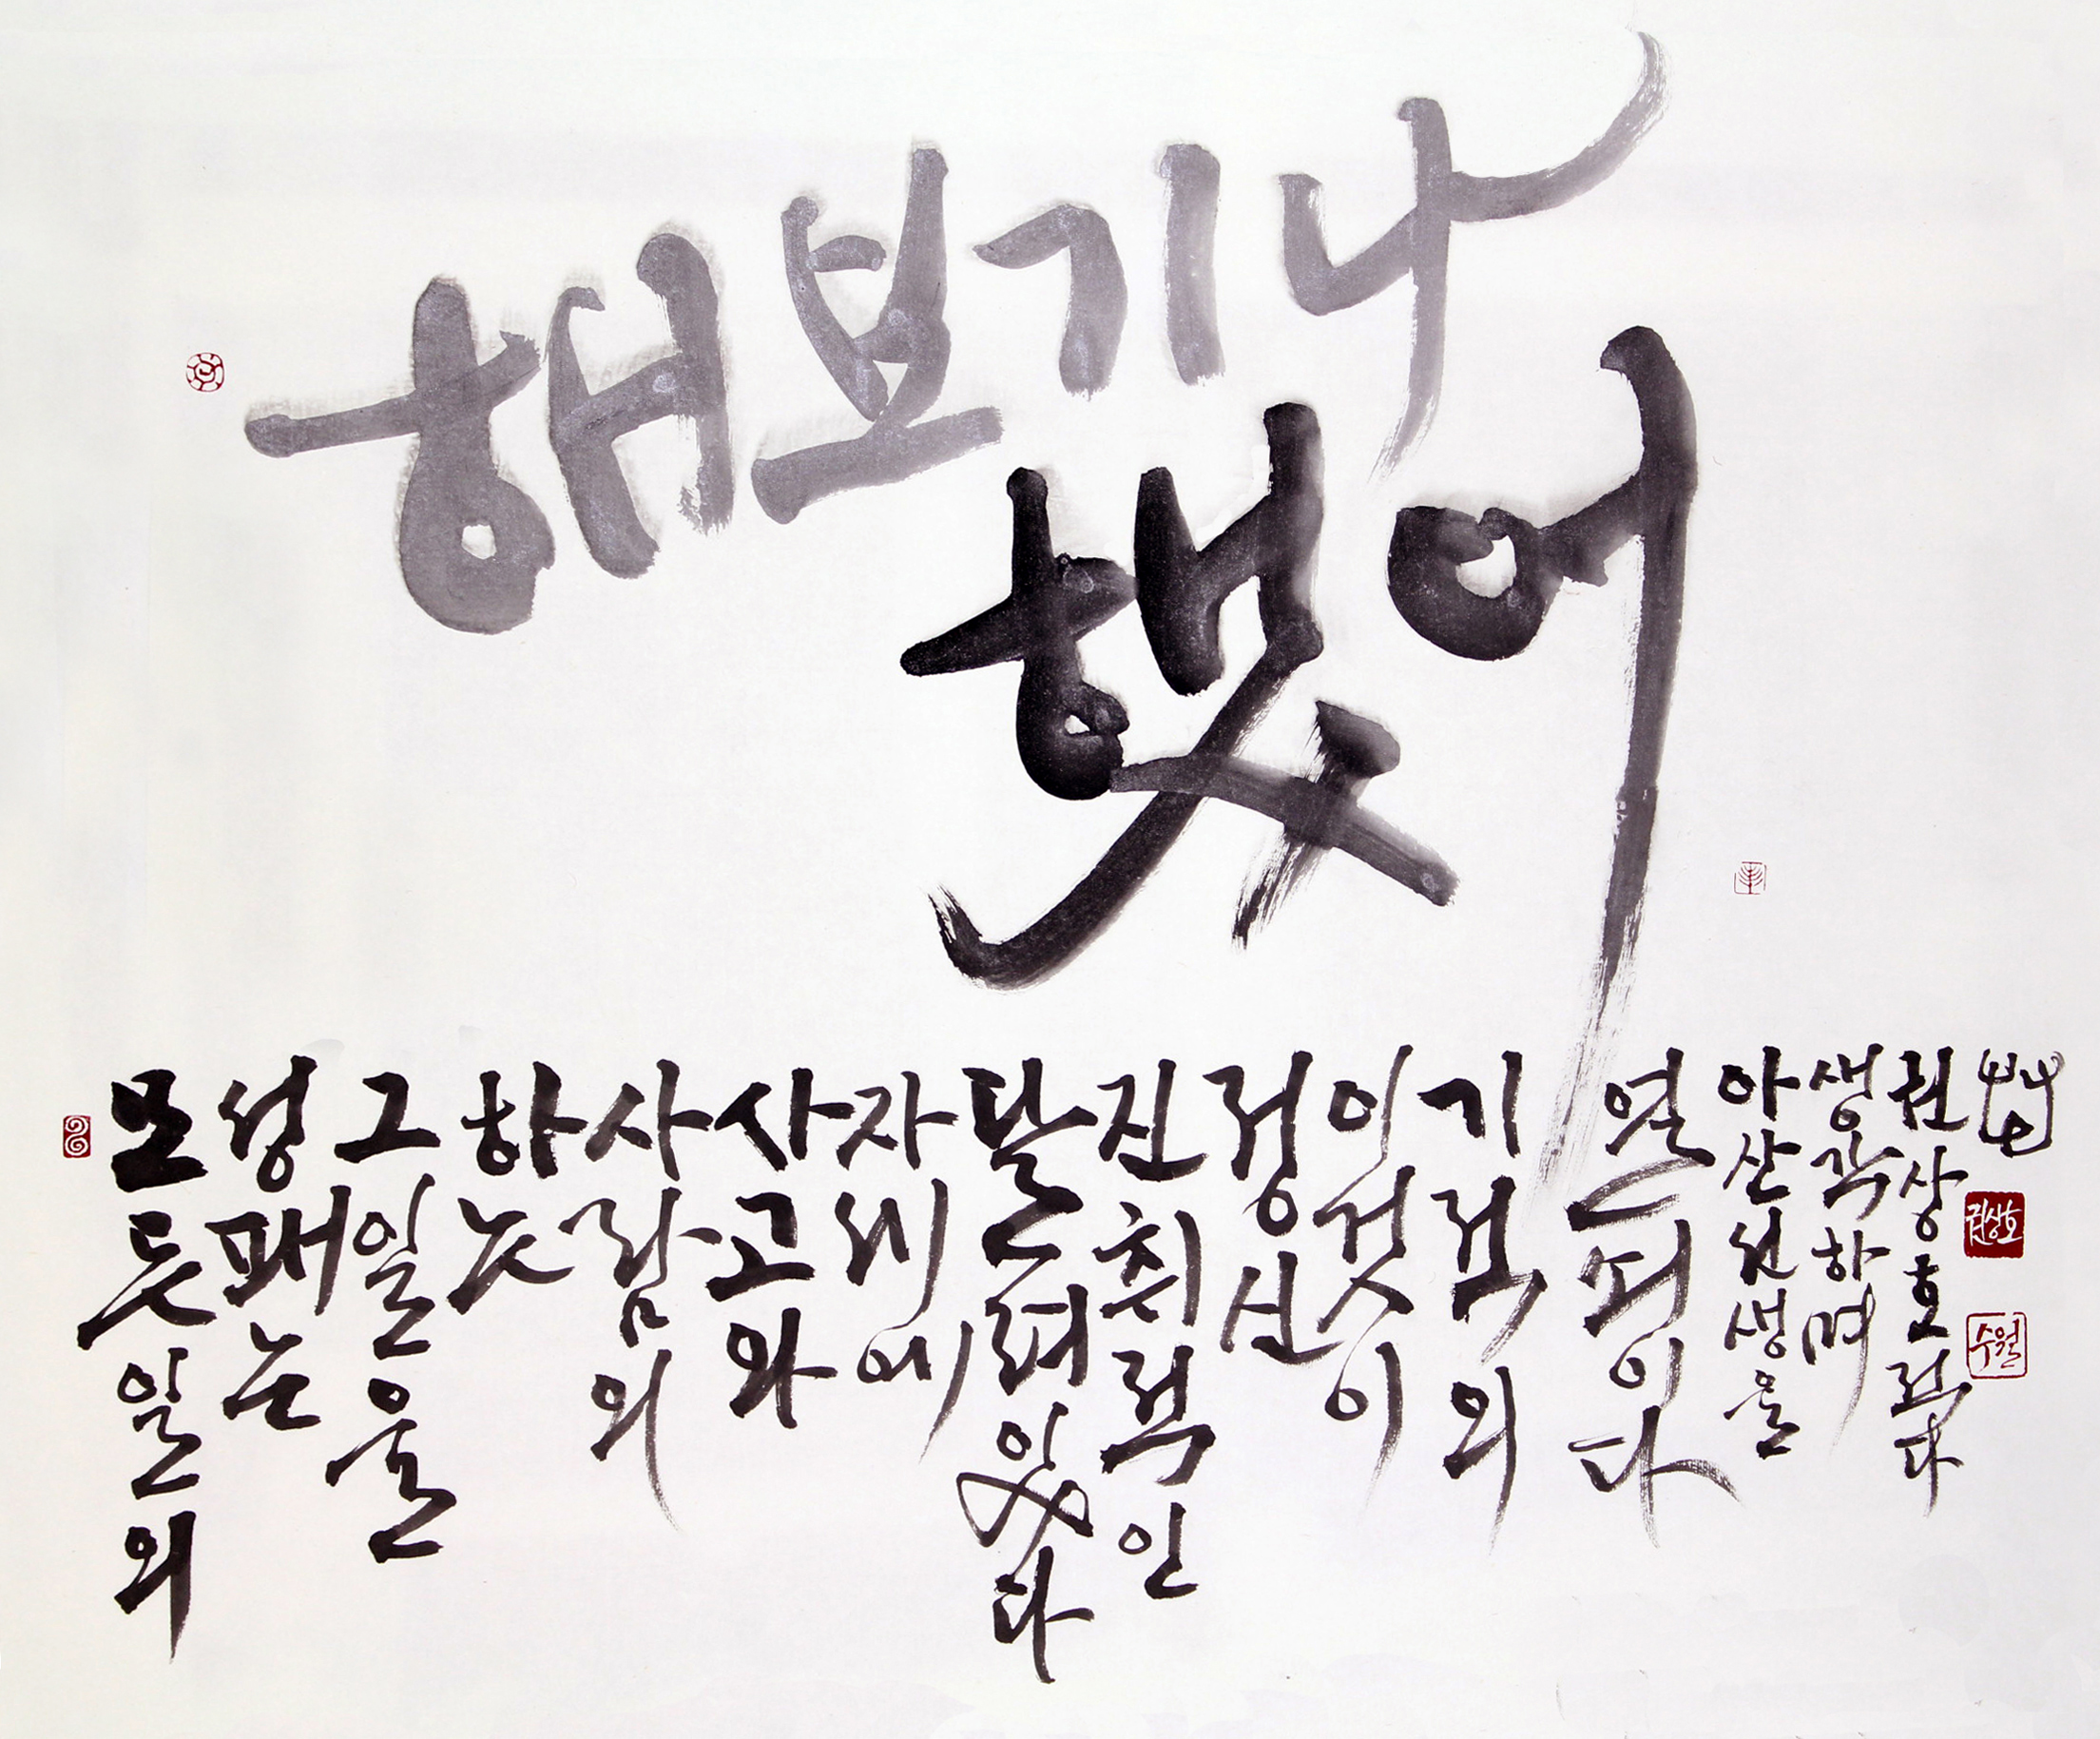 해보기나
했어
모든일의
성패는
그일을
하는
사람의
사고와
자세에
달려있다
진취적인
정신
이것이
기적의
열쇠이다
아산선생을
생각하며
권상호적다
권상호
수월